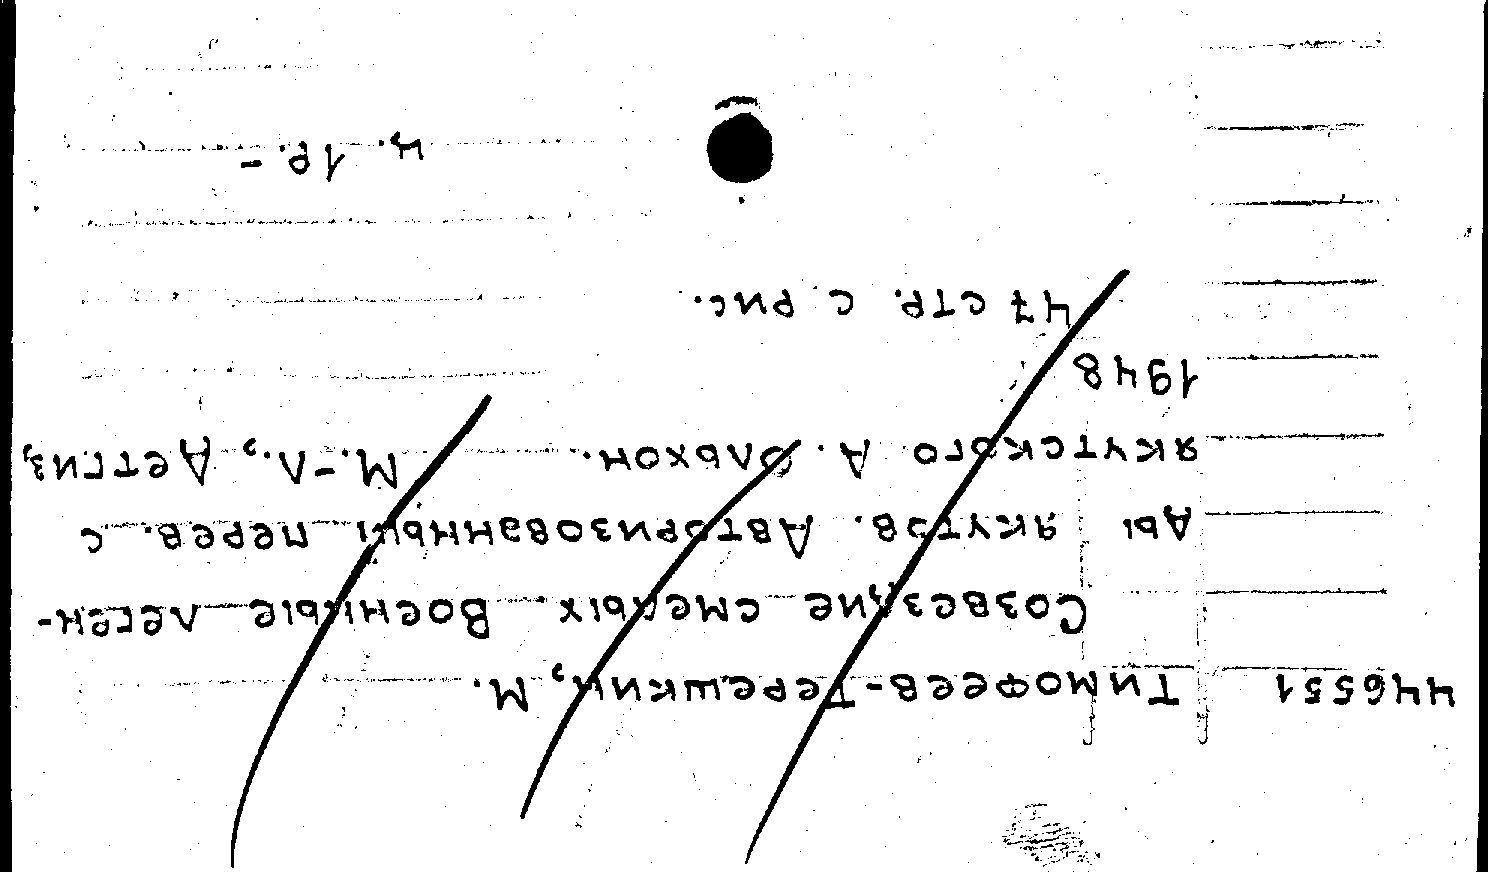 446551 Тимофеев-Терешкин, М.
Созвездие смелых. Военные леген-
ды якутов. Авторизованный перев. с
якутского А. Ольхон. М.-Л., Детгиз,
1948
47 стр. с рис.
ц. 1р. -